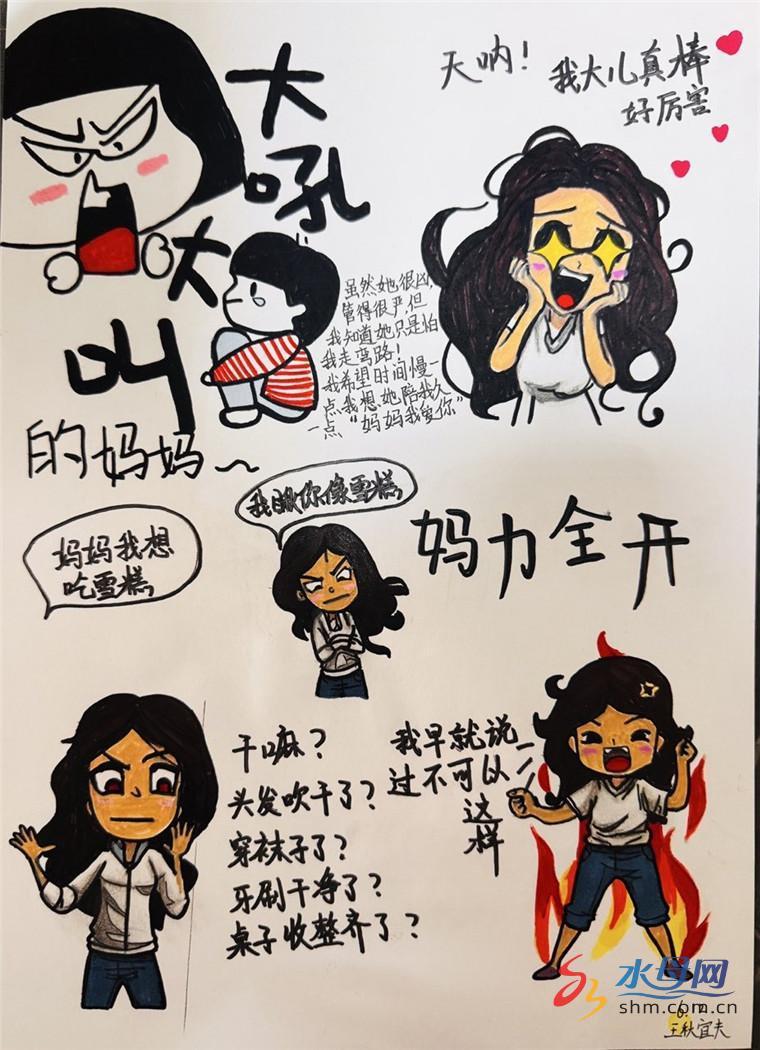 大
吼
大
叫
的妈妈~
天呐!
我大儿真棒
好厉害
虽然她很凶,
管得很严,但
我知道她只是怕
我走弯路!
我希望时间慢一
点我想她陪我久
一点“妈妈我爱你”
妈妈我想
吃雪糕
我瞅你像雪糕
妈力全开
干嘛?
头发吹干了?
穿袜子了?
牙刷干净了?
桌子收整齐了?
我早就说
过不可以
这
样
水母网
shm.com.cn
王秋宜夫